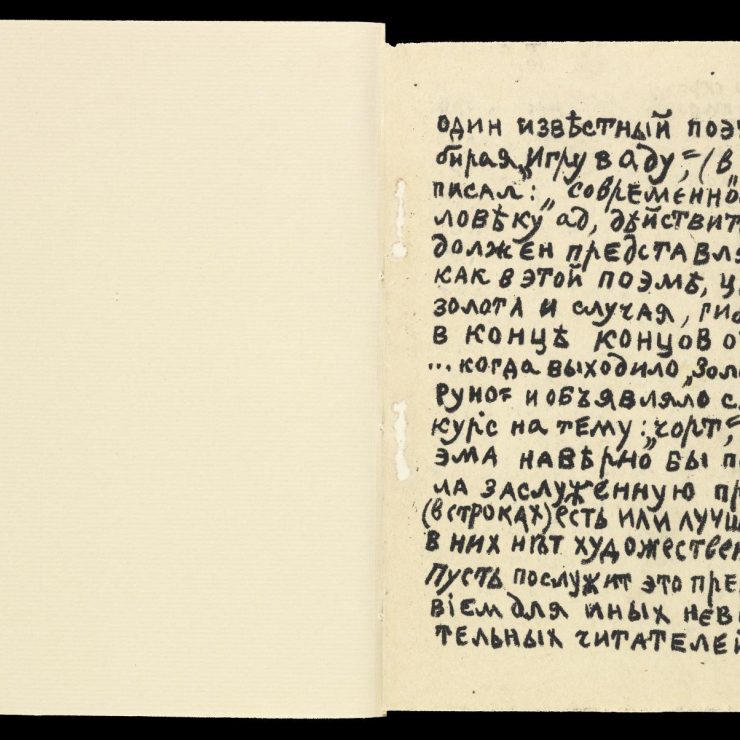 один извѣстный поэ
бирая „Игру в аду„ (в
писал: „современно
ловѣку ад, дѣйствит
должен представля
как в этой поэмѣ, ц
золота и случая, гиб
в концѣ концов о
... когда выходило „Золо
Руно" и объявляло с
курс на тему: „чорт„
эма навѣрно бы по
ла заслуженную пр
(в строках) есть или лучш
в них нѣт художествен
Пусть послужит это пре
віем для иных нев
тельных читателей